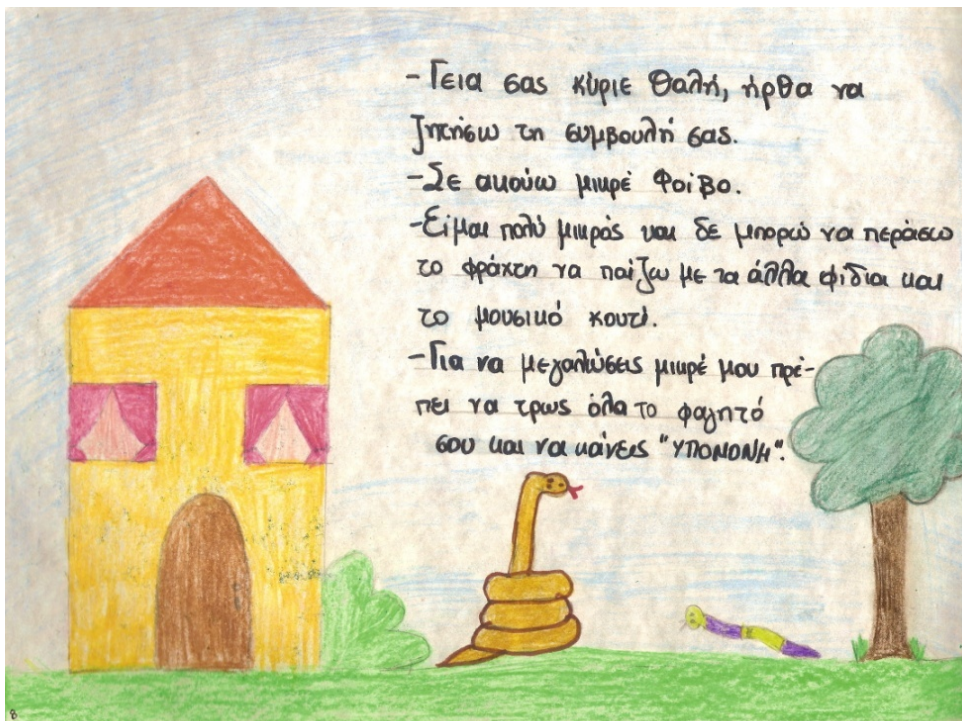 - Γεια σας κύριε Θαλή, ήρθα να
ζητήσω τη συμβουλή σας.
- Σε ακούω μικρέ Φοίβο.
- Είμαι πολύ μικρός και δε μπορώ να περάσω
το φράχτη να παίζω με τα άλλα φίδια και
το μουσικό κουτί.
- Για να μεγαλώσεις μικρέ μου πρέ-
πει να τρως όλα το φαγητό
σου και να κάνεις "ΥΠΟΜΟΝΗ".
8